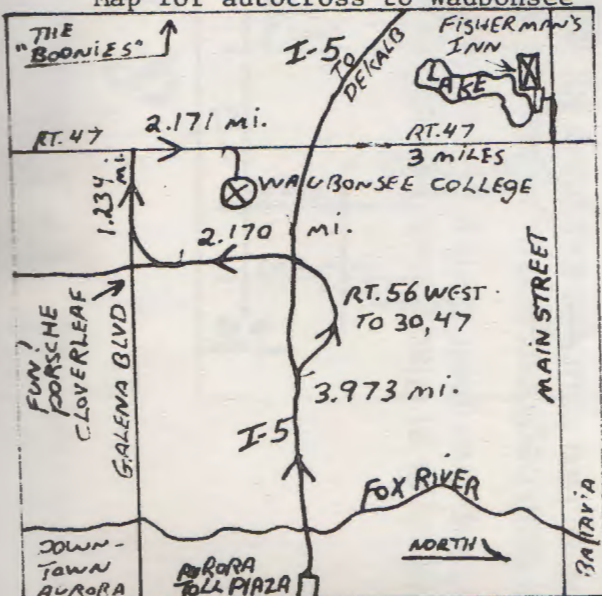 Map for autocross to Waubonsee
THE
"BOONIES"
I-5
TO
DEKALB
FISHERMAN'S
INN
LAKE
RT.47
2.171 mi.
RT.47
3 MILES
WAUBONSEE COLLEGE
1.234
mi.
2.170 mi.
RT. 56 WEST
TO 30,47
FUN!
PORSCHE
CLOVERLEAF
GALENA BLVD
MAIN STREET
3.973 mi.
I-5
FOX RIVER
NORTH
DOWN-
TOWN
AURORA
AURORA
TOLL PLAZA
BATAVIA